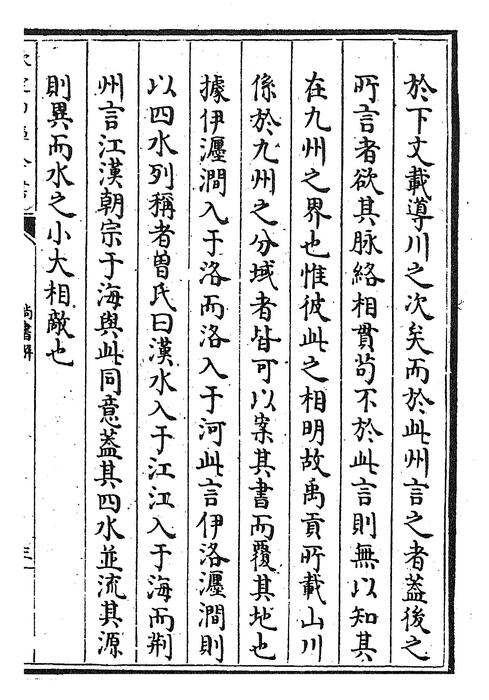 於下文載導川之次矣而於此州言之者蓋後之
所言者欲其脉絡相貫茍不於此言則無以知其
在九州之界也惟彼此之相明故禹貢所載山川
係於九州之分域者皆可以案其書而覆其地也
據伊瀍澗入于洛而洛入于河此言伊洛瀍澗則
以四水列稱者曽氏曰漢水入于江江入于海而荆
州言江漢朝宗于海與此同意蓋其四水並流其源
則異而水之小大相敵也
尚書解